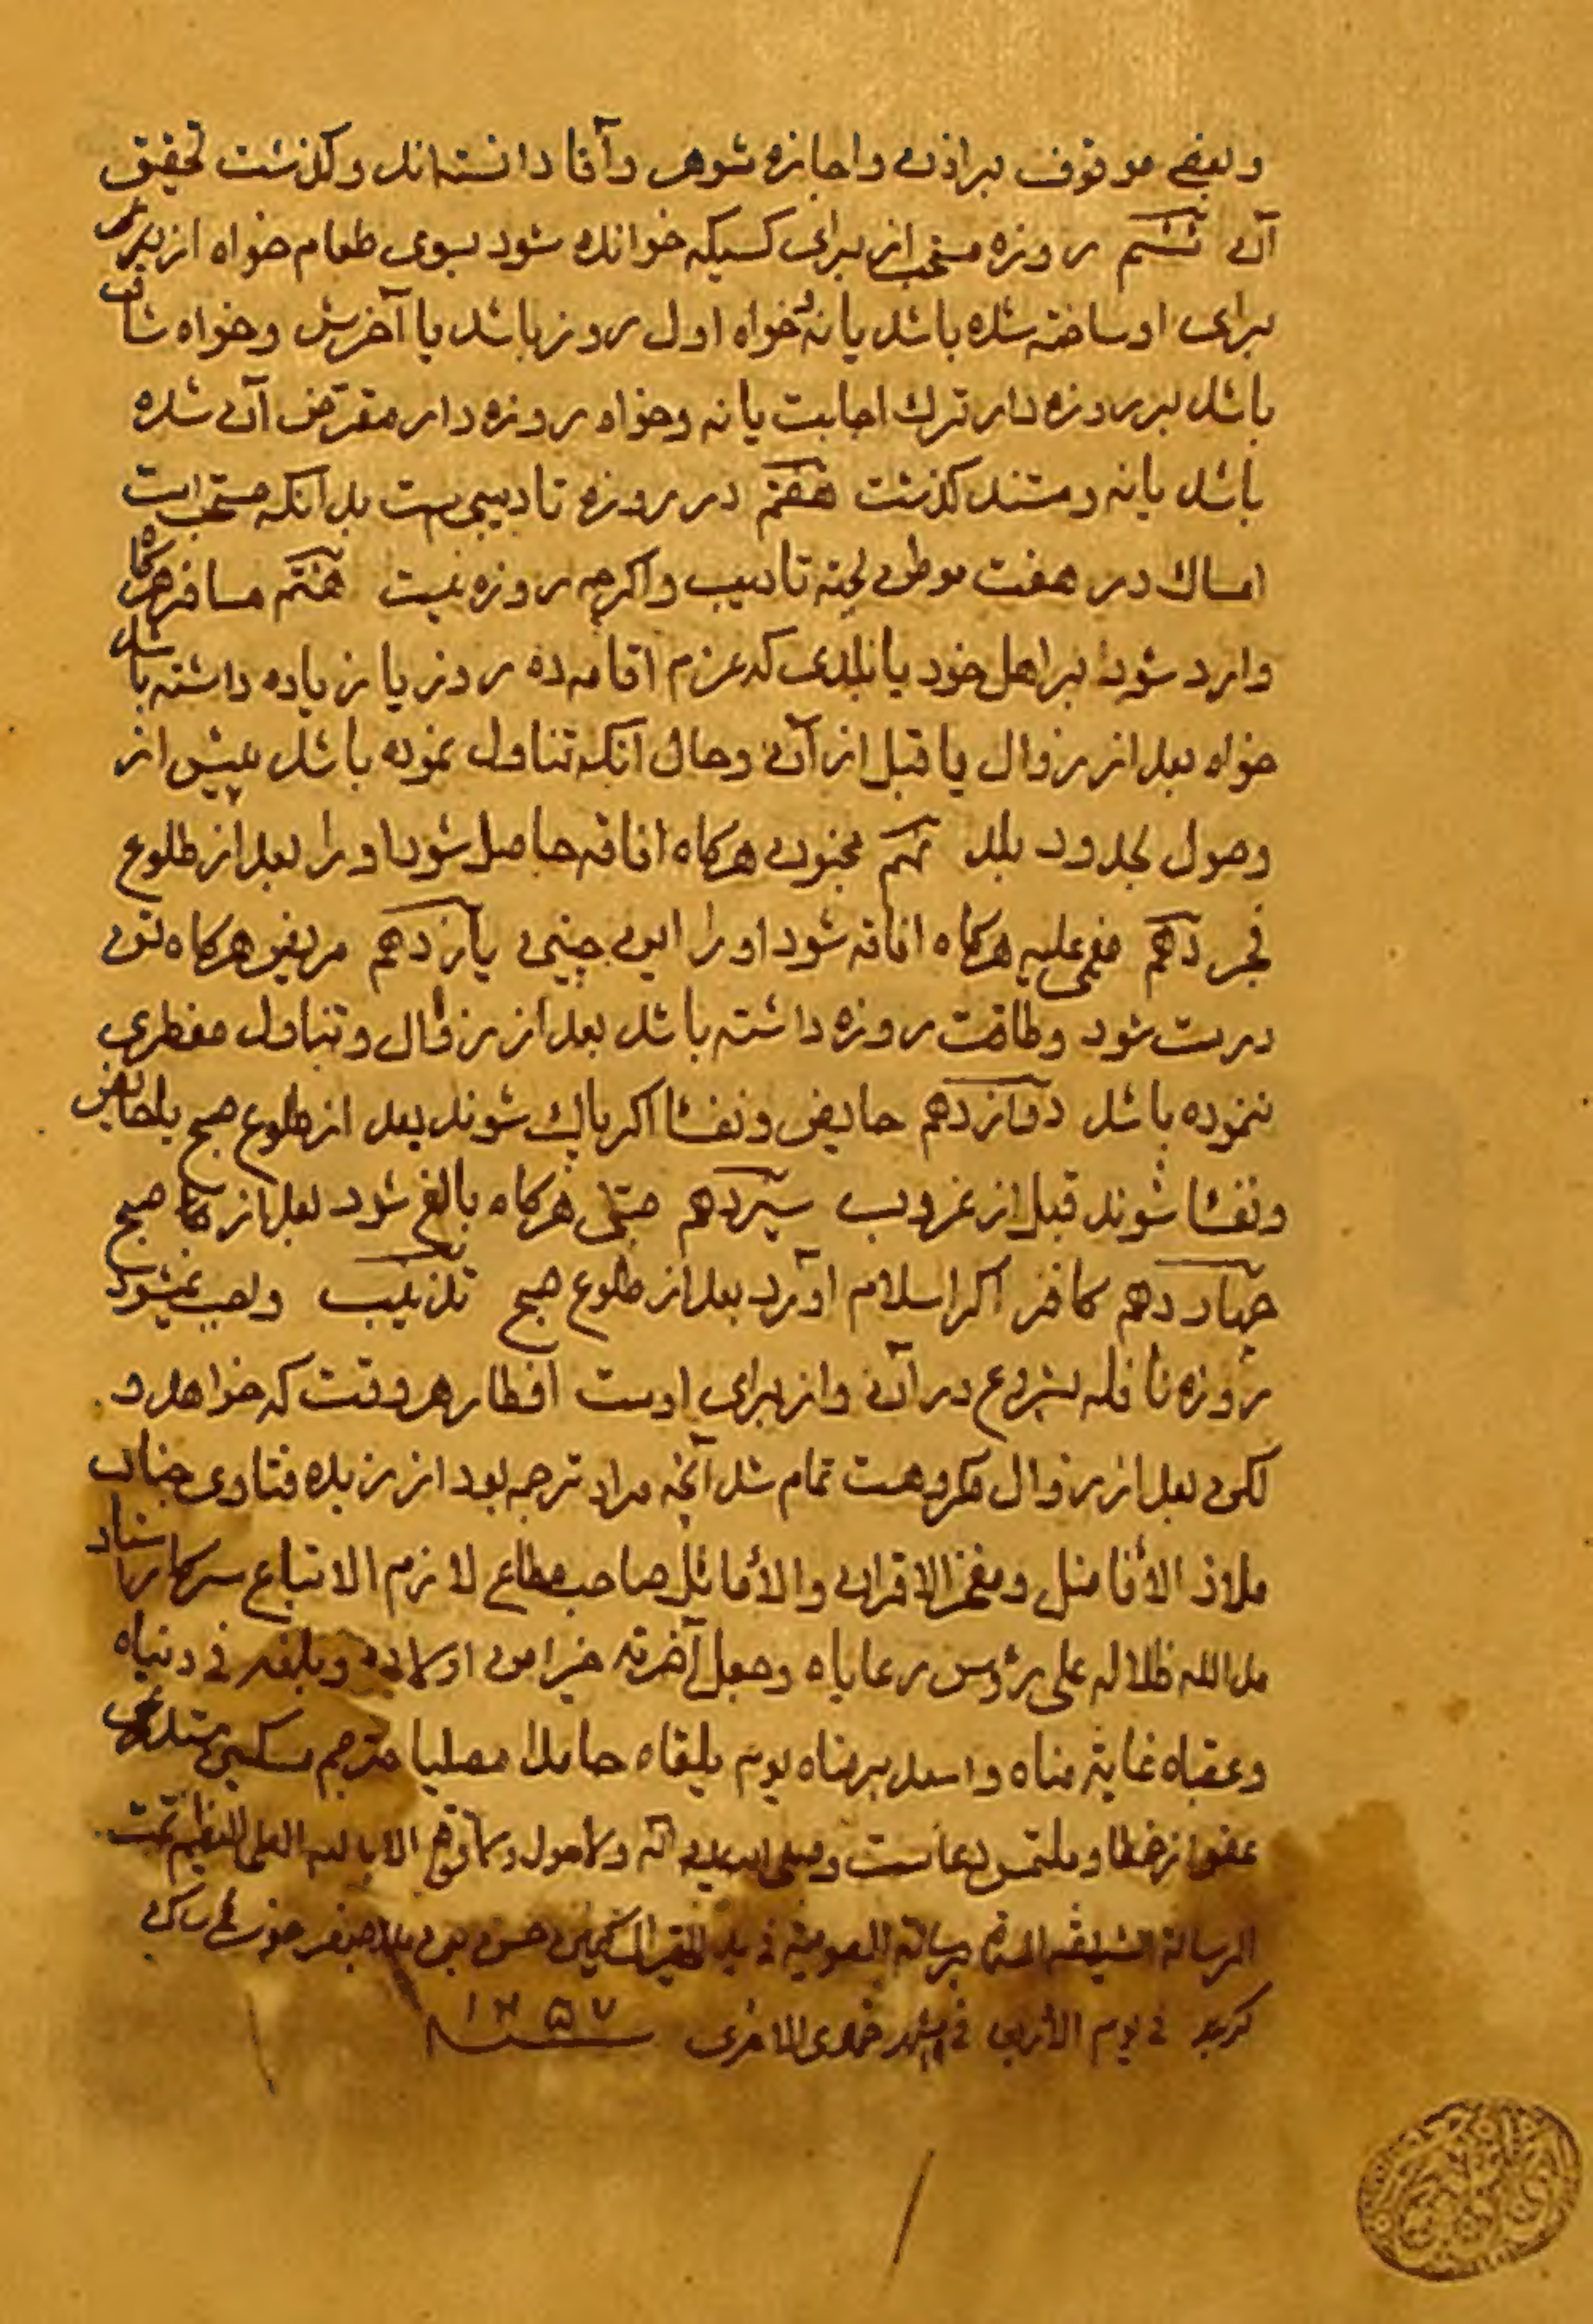 و بعضی موقوف براذن و اجازه شوهر و آقا دانسته‌اند و گذشت تحقیق
آن ششم روزه مستحب از برای کسیکه خوانده شود بسوی طعام خواه از برای
برای او ساخته شده باشد یا نه خواه اول روز باشد یا آخرش و خواه شاق
باشد بر روزه دار ترک اجابت یا نه و خواه روزه دار متعرض آن شده
باشد یا نه و مستند گذشت هفتم در روزه تادیبی است بدانکه مستحب است
امساک در هفت موطن لجهة تادیب و اگرچه روزه نیست هشتم مسافر هرگاه
وارد شود براهل خود یا ببلدی که عزم اقامه ده روز یا زیاده داشته باشد
خواه بعد از زوال یا قبل از آن و حال آنکه تناول نموده باشد پیش از
وصول بحدود بلد نهم مجنون هرگاه افاقه حاصل شود او را بعد از طلوع
فجر دهم مغمی علیه هرگاه افاقه شود او را این چنین یازدهم مریض هرگاه تن
درست شود و طاقت روزه داشته باشد بعد از زوال و تناول مفطری
ننموده باشد دوازدهم حایض و نفسا اگر پاک شوند بعد از طلوع صبح یا حایض
و نفسا شوند قبل از غروب سیزدهم صبی هرگاه بالغ شود بعد از صبح
چهاردهم کافر اگر اسلام آورد بعد از طلوع صبح تذنیب واجب نمیشود
روزه نافله بشروع در آن و از برای اوست افطار هر وقت که خواهد و
لکن بعد از زوال مکروهست تمام شد آنچه مراد ترجمه بود از زبده فتاوی جناب
ملاذ الأفاضل و مفخر الاقران و الأماثل صاحب مطاع لازم الاتباع سرکار
مد الله ظلاله علی رؤس رعایاه و جعل آخرته خیرا من اولاه و بلغه فی دنیاه
و عقباه غایة مناه و اسعد برضاه یوم یلقاه حامدا مصلیا مترجم مسکین مستدعی
عفو از خطا و ملتمس دعاست و لا حول و لا قوة الا بالله العلی العظیم تمت
الرسالة الشریفة فی ید
فی یوم فی شهر جمادی الاخری ۱۲۵۷